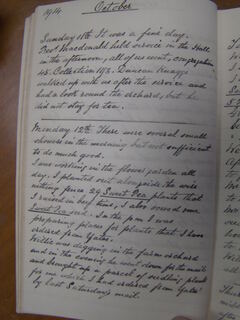 1914 October
Sunday 11th It was a fine day.
Revd Macdonald held service in the Hall
in the afternoon, all of us went, congregation
45. Collection 19/3. Duncan
walked up with us after the service and
had a look round the orchard, but he
did not stay for tea.
Monday 12th There were several small
showers in the morning but not sufficient
to do much good.
I was working in the flower garden all
day. I planted out alongside the wire
netting fence 29 Sweet Pea plants that
I raised in boxes, I also sowed some
Sweet Pea seed. In the p.m I was
preparing places for plants that I have
ordered from Yates.
Willie was digging in the farm orchard
and in the evening he went down for the mail
and brought up a parcel of seedling plants
for me which I had ordered from Yates'
by last Saturday's mail.